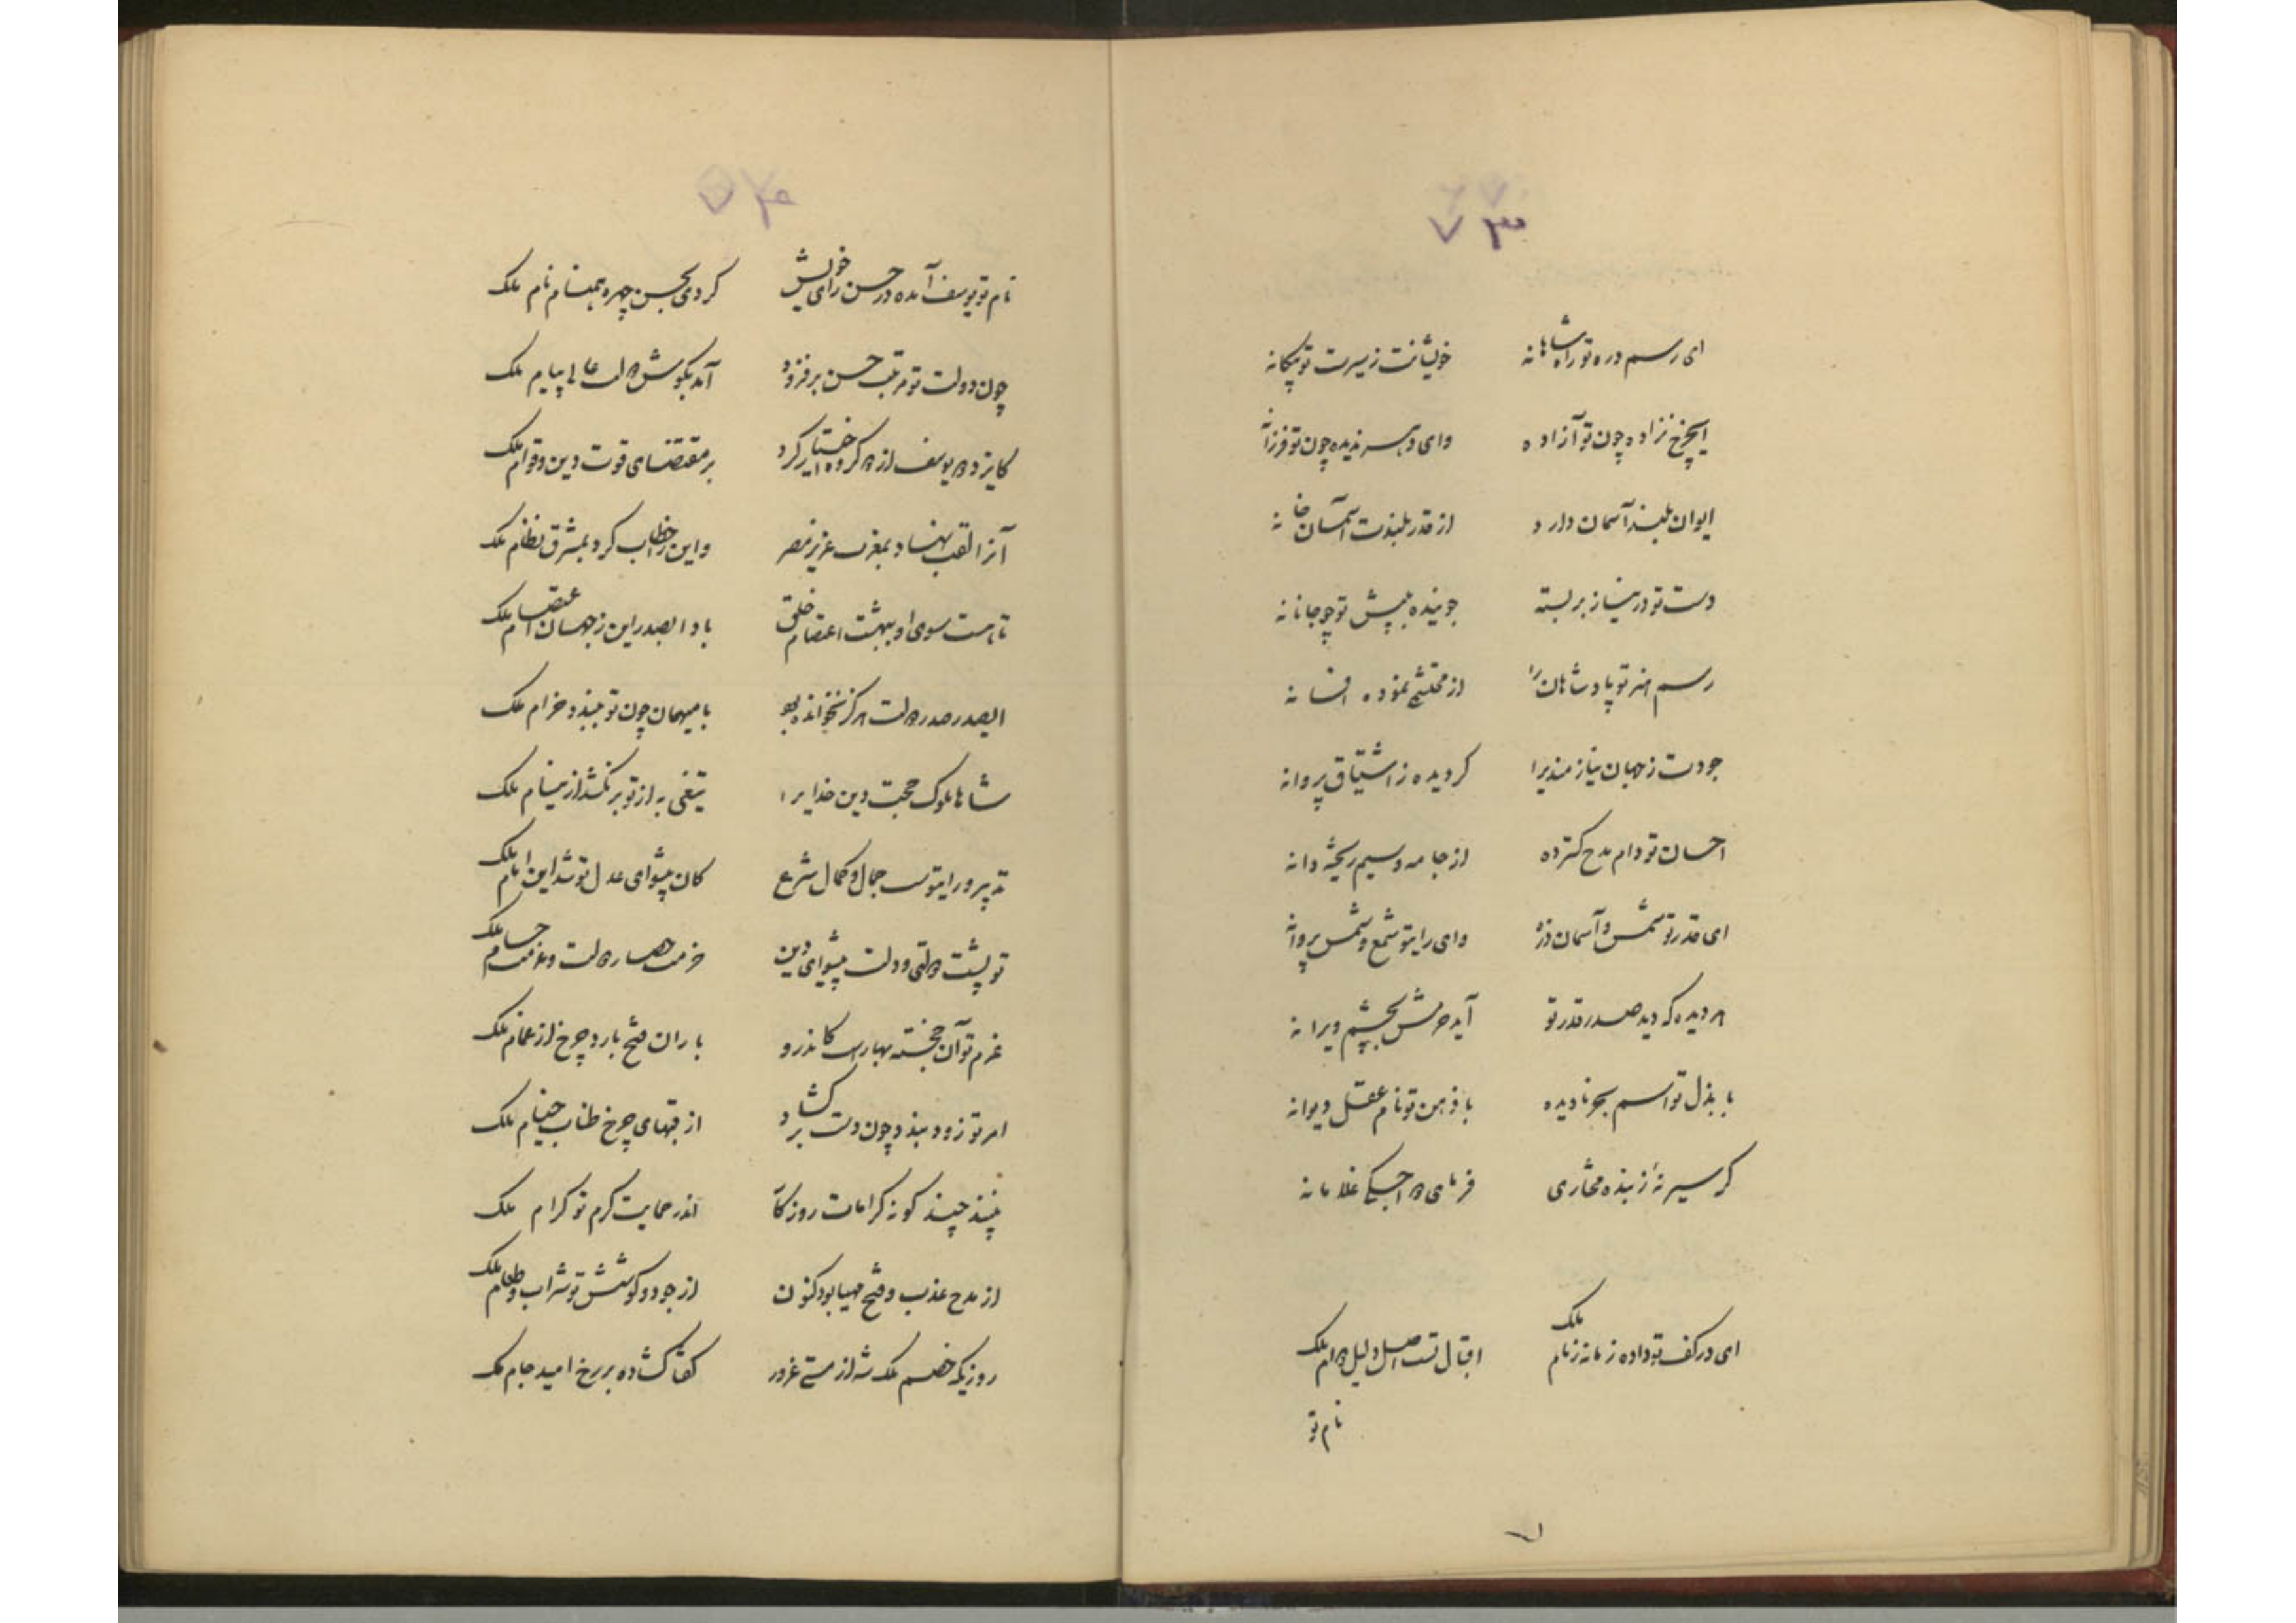 ۷۳
ای رسم در ره تو راه شاهانه خویشانت ز سیرت تو بیکانه
ای چرخ نزاده چون تو آزاده وای دهر ندیده چون تو فرزانه
ایوان بلند آسمان دارد از قدر بلندت آسمان خانه
دست تو در نیاز بر بسته جوینده به پیش تو چو جانانه
رسم هنر تو پادشاهان را از محتشمی نموده افسانه
جودت ز جهان نیازمندیرا کردیده ز اشتیاق پروانه
احسان تو دام مدح کسترده از جامه و سیم ریخته دانه
ای قدر تو شمس و آسمان ذره وای رای تو شمع و شمس پروانه
هر دیده که دید صدر قدر تو آید بچشم ویرانه
با بذل تو اسم بحر نادیده با ذهن تو نام عقل دیوانه
کر سیر نه‌ٔ ز بنده مختاری فرمای غلامانه
ای در کف تو داده زمانه زمام ملک اقبال تست اصل و دلیل دوام ملک
نام تو
۷۴
نام تو یوسف آمده در حسن رای خویش کردی بحسن چهره همنام نام ملک
چون دولت تو مرتبت حسن بر فزود آمد بکوش ملت عالی پیام ملک
کایزد دو یوسف از دو کروه اختیار کرد بر مقتضای قوت دین و قوام ملک
آنرا لقب نهاد بمغرب عزیز مصر واین را خطاب کرد بمشرق نظام ملک
تا هست سوی او بهشت اعتصام خلق بادا بصدر این ز جهان اعتصام ملک
ای صدر صدر ملت هرکز نخوانده با میهمان چون تو بلند خرام ملک
شاها ملوک حجت دین خدایرا تیغی به از تو بر نکشد از نیام ملک
تدبیر و رای تست جمال و کمال شرع کان پیشوای عدل تو شد این امام ملک
تو پشت ملتی و دولت پیشوای دین حزمت حصار ملت و عزمت حسام ملک
عزم تو آن خجسته بهاریست کاندرو باران فتح بارد چرخ از غمام ملک
امر تو زود بندد چون دست بر کشاد از قبهای چرخ طناب خیام ملک
بیند چند کونه کرامات روزکار اندر حمایت کرم تو کرام ملک
از مدح عذب و فتح مهیا بود کنون از جود و کوشش تو شراب و طعام ملک
روزیکه خصم ملک شه از مستی غرور کفتا کشاده بر رخ امید جام ملک